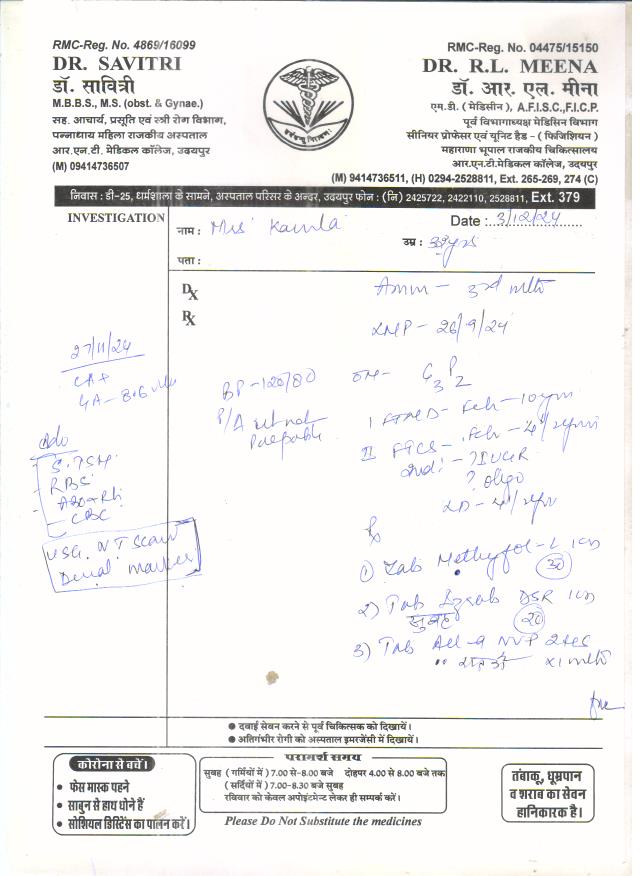 RMC-Reg. No. 4869/16099
DR. SAVITRI
डॉ. सावित्री
M.B.B.S., M.S. (obst. & Gynae.)
सह. आचार्य, प्रसूति एवं स्त्री रोग विभाग,
पन्नाधाय महिला राजकीय अस्पताल
आर.एन.टी. मेडिकल कॉलेज, उदयपुर
(M) 09414736507
RMC-Reg. No. 04475/15150
DR. R.L. MEENA
डॉ. आर. एल. मीना
एम.डी. ( मेडिसीन ), A.F.I.S.C.,F.I.C.P.
पूर्व विभागाध्यक्ष मेडिसिन विभाग
सीनियर प्रोफेसर एवं यूनिट हैड - ( फिजिशियन )
महाराणा भूपाल राजकीय चिकित्सालय
आर.एन.टी.मेडिकल कॉलेज, उदयपुर
(M) 9414736511, (H) 0294-2528811, Ext. 265-269, 274 (C)
निवास : डी-25, धर्मशाला के सामने, अस्पताल परिसर के अन्दर, उदयपुर फोन : (नि) 2425722, 2422110, 2528811, Ext. 379
INVESTIGATION
नाम : Mrs Kamla
Date : 3/12/24
उम्र :
पता :
DX
RX
Amm - 3rd mth
LMP - 26/9/24
27/11/24
GA - 8.6
BP - 120/80
G3 P2
P/A ut not
Palpable
I FTND - Feh - 10 yrs
II FTCS - Feh - 4 1/2 yrs
Ind: - ? IUGR
? oligo
LD - 4 1/2 yrs
Adv
S. TSH
RBS
ABO + Rh
CBC
USG. NT Scan
Dual marker
Rx
① Tab Methyfol-L 1 OD
30
2) Tab DSR 1 OD
सुबह 20
3) Tab All-9 NVP 2 tab
रात को x 1 mth
● दवाई सेवन करने से पूर्व चिकित्सक को दिखायें।
● अतिगंभीर रोगी को अस्पताल इमरजेंसी में दिखायें।
कोरोना से बचें।
• फेस मास्क पहने
• साबुन से हाथ धोने हैं
• सोशियल डिस्टेंस का पालन करें।
परामर्श समय
सुबह ( गर्मियों में ) 7.00 से-8.00 बजे दोहपर 4.00 से 8.00 बजे तक
( सर्दियों में ) 7.00-8.30 बजे सुबह
रविवार को केवल अपोइंटमेन्ट लेकर ही सम्पर्क करें।
Please Do Not Substitute the medicines
तंबाकू, धूम्रपान
व शराब का सेवन
हानिकारक है।